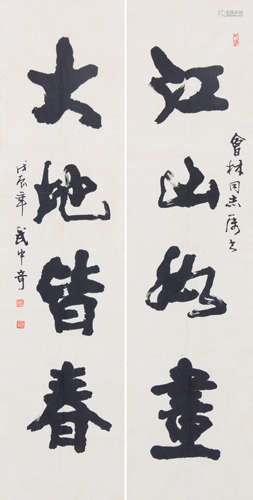 江山如畫
會林同志屬書
大地皆春
戊辰年 武中奇